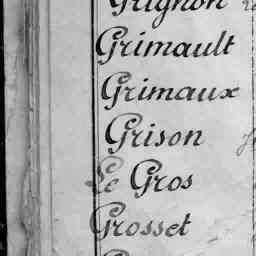 Grignon
Grimault
Grimaux
Grison
Le Gros
Grosset